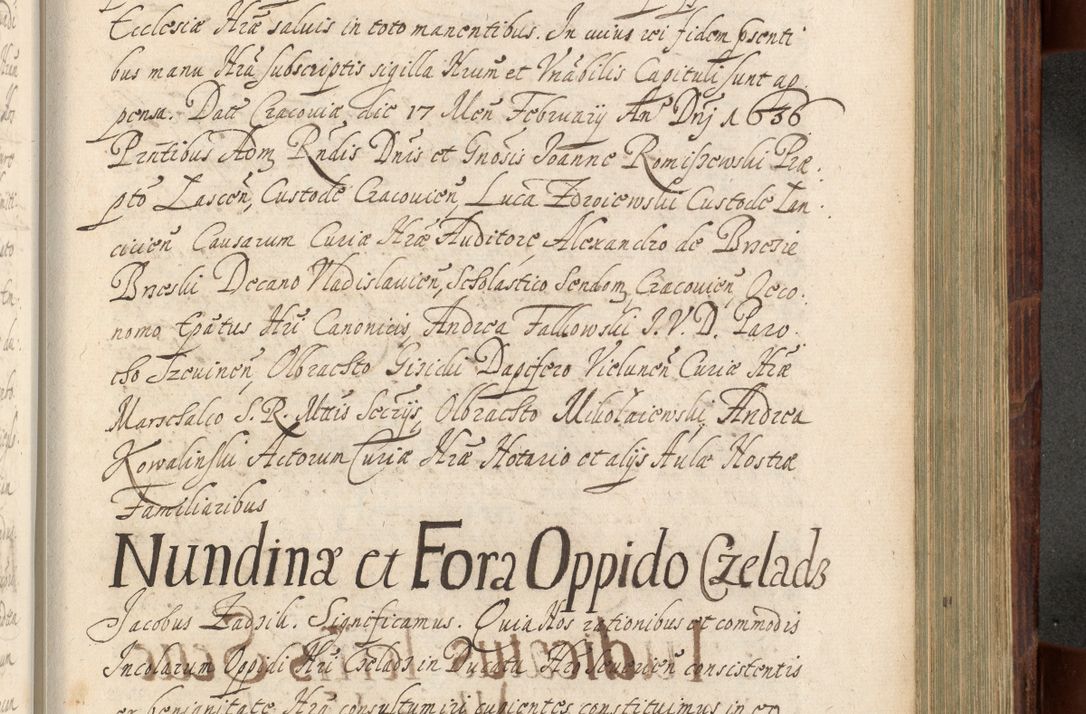 Ecclesiæ Nræ saluis in toto manentibus. In cuius rei fidem psenti
bus manu Nrâ subscriptis sigilla Nrum et Vnâbilis Capituli sunt ap
pensa. Datt Cracouiæ die 17 Men̄ February An̄ Dn̄j 1636
Prñtibus Adm̄ Rn̄dis Dn̄is et Gnōsis Joanne Romiszewski Præ
ptō Lascen̄, Custode Cracouien̄, Luca Zdroiewski Custode Lan
cicien̄ Causarum Curiæ Nræ Auditore Alexandro de Brzezie
Brzeski Decano Vladislauien̄, Scholastico Sendom̄, Cracouien̄, Oeco
nomo Epātus Nri Canonicis, Andrea Falkowski I. V. D. Paro
cho Dagifero Vielunen̄ Curiæ Nræ
Marschalco S. R. Mttis Secrijs, Olbrachto Mikołaiewski, Andrea
Kowalinski Actorum Curiæ Nræ Notario et alijs Aulæ Nostræ
Familiaribus
Nundinæ et Fora Oppido Czeladz
Jacobus Zadzik. Significamus. Quia Nos rationibus et commodis
Incolarum Oppidi Nri Czeladz in Ducatu consistentis
ex benignitate Nrâ consultum iri cupientes constituimus in eo